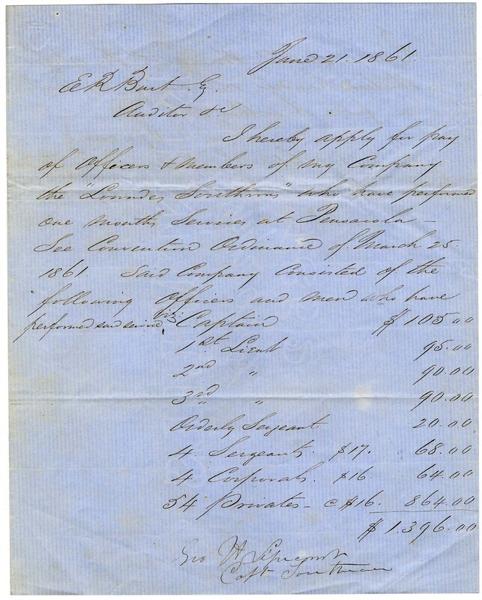 June 21. 1861.
E R Burt Esq.
Auditor &c
I hereby apply for pay
of Officers & Members of my Company
the "Lowndes Southrons" who have performed
one months services at Pensacola -
See Convention Ordinance of March 25
1861 Said Company consisted of the
following Officers and men who have
performed said service, viz: Captain $105.00
1st. Lieut 95.00
2nd " 90.00
3rd " 90.00
Orderly Sergeant 20.00
4 Sergeants. $17. 68.00
4 Corporals. $16 64.00
54 Privates - @ $16. 864.00
$1.396.00
Geo H
Capt Southrons